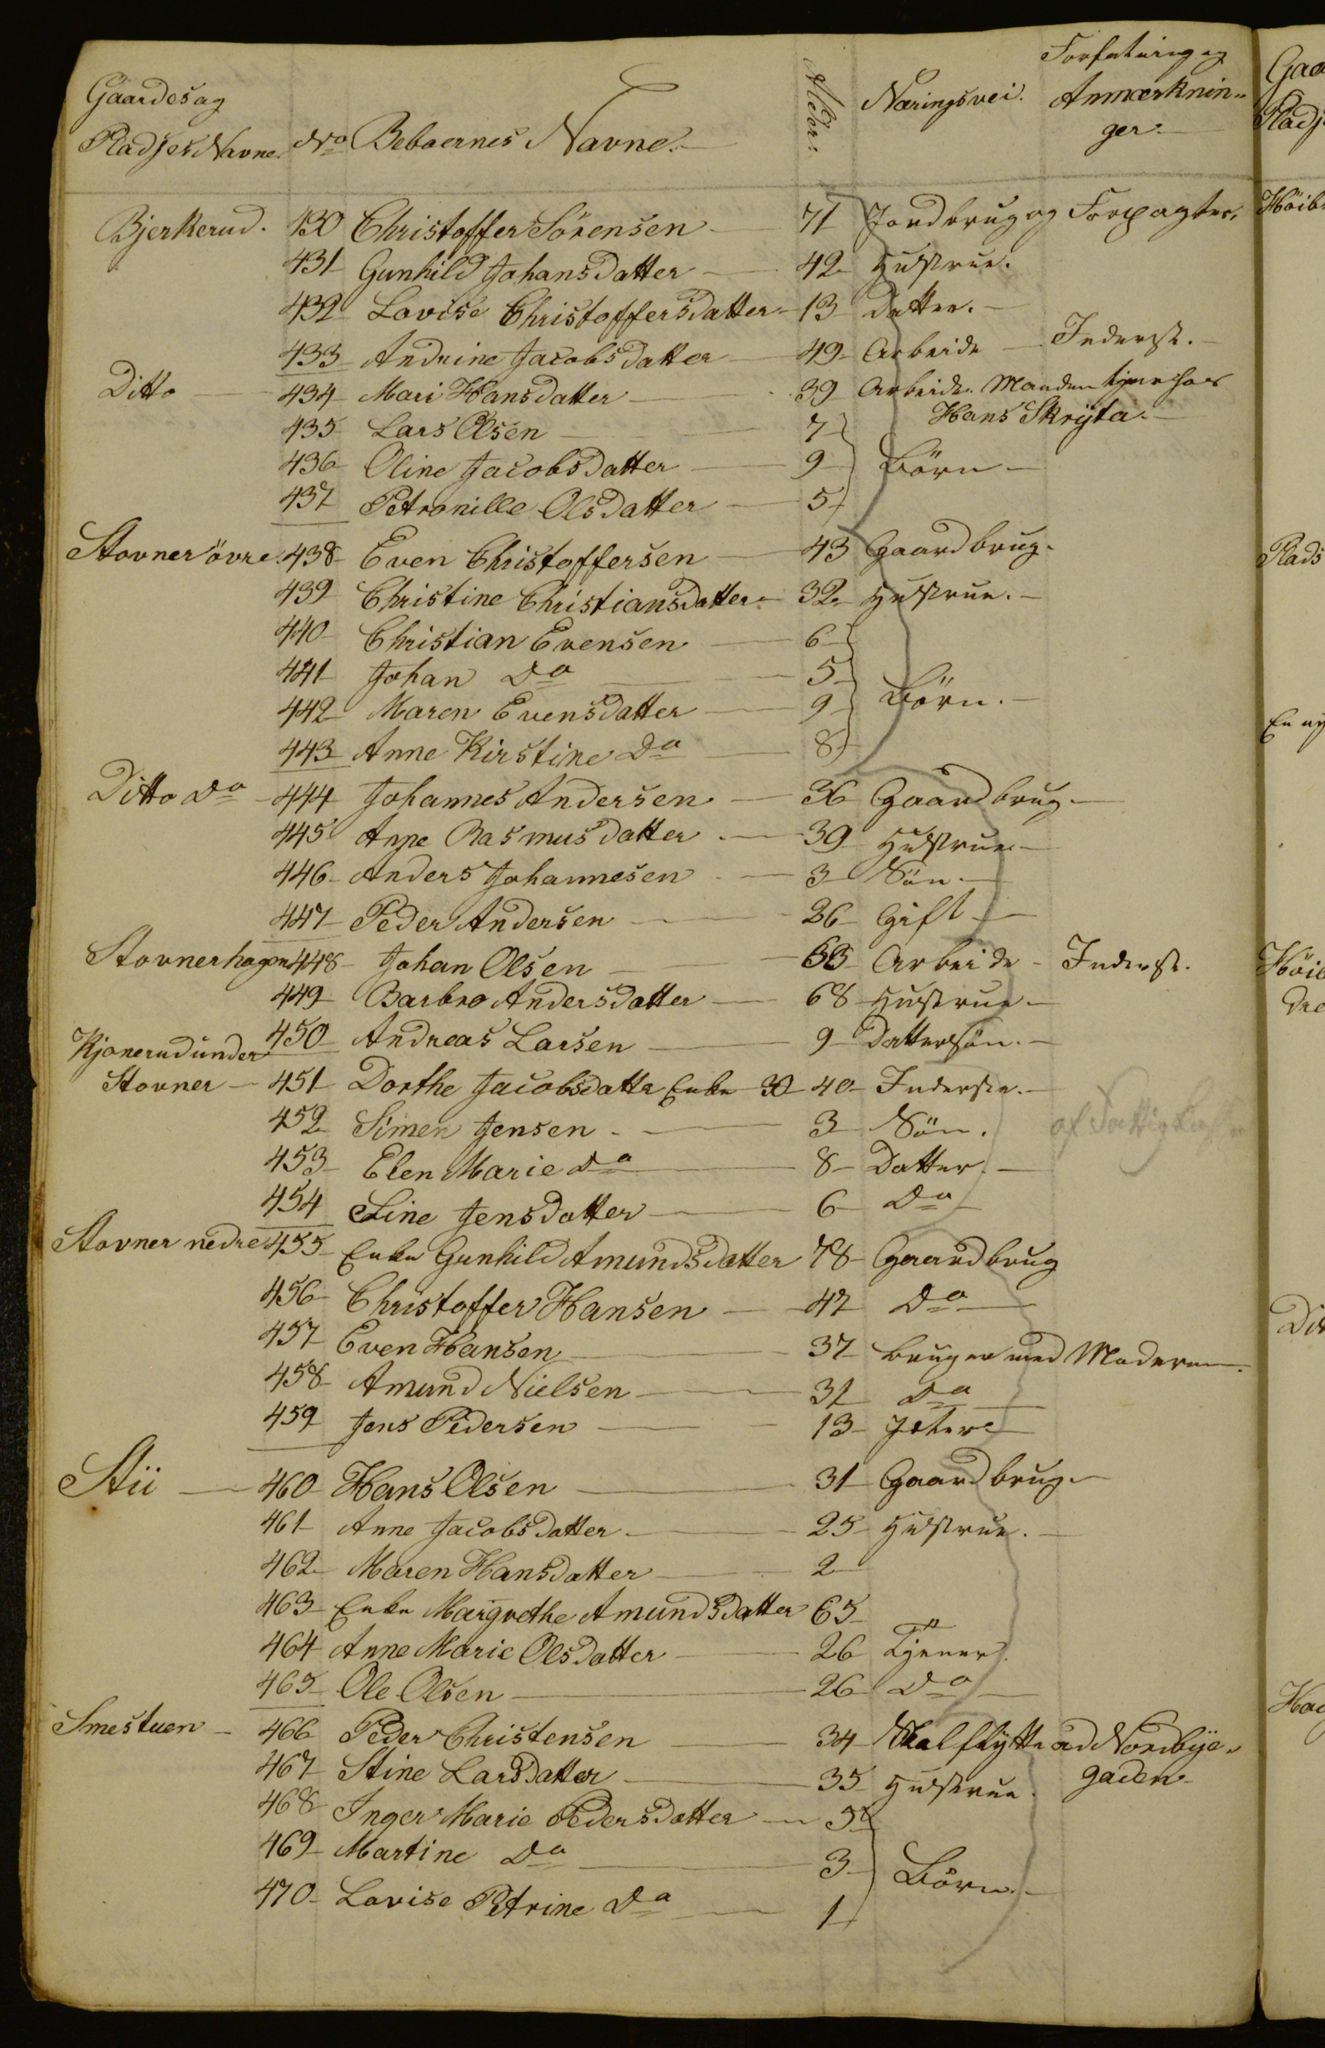 Gaardes og Pladses Navne. No Beboernes Navne. Alder. Næringsvei. Forfatning og Anmærkninger.
Bjerkerud. 430 Christoffer Sörensen 71 Jordbrug og Forpagter.
431 Gunhild Johansdatter 42 Hustrue.
432 Lovise Christoffersdatter 13 Datter.
433 Andrine Jacobsdatter 49 Arbeide Inderst.
Ditto 434 Mari Hansdatter 39 Arbeide. Manden tjener hos
435 Lars Olsen 7 Hans Skrÿta.
436 Oline Jacobsdatter 9 Börn
437 Petronille Olsdatter 5
Stovner övre. 438 Even Christoffersen 43 Gaardbrug.
439 Christine Christiansdatter 32 Hustrue.
440 Christian Evensen 6
441 Johan Do 5
442 Maren Evensdatter 9 Börn.
443 Anne Kirstine Do 8
Ditto Do 444 Johannes Andersen 36 Gaardbrug
445 Anne Rasmusdatter 39 Hustrue
446 Anders Johannesen 3 Sön
447 Peder Andersen 26 Gift
Stovnerhagen 448 Johan Olsen Arbeide Inderst.
449 Barbro Andersdatter 68 Hustrue
450 Andreas Larsen 9 Dattersön.
Kjonerud under
Stovner 451 Dorthe Jacobsdatter Enke 30 40 Inderste.
452 Simen Jensen 3 Sön. af Fattigkassen
453 Elen Marie Do 8 Datter.
454 Line Jensdatter 6 Do
Stovner nedre 455 Enke Gunhild Amundsdatter 78 Gaardbrug
456 Christoffer Hansen 47 Do
457 Even Hansen 37 bruger med Moderen.
458 Amund Nielsen 31 Do
459 Jens Pedersen 13 Jæter
Stii 460 Hans Olsen 31 Gaardbrug
461 Anne Jacobsdatter 25 Hustrue.
462 Maren Hansdatter 2
463 Enke Margrethe Amundsdatter 65
464 Anne Marie Olsdatter 26 Tjener.
465 Ole Olsen 26 Do
Smestuen 466 Peder Christensen 34 Skal flÿtte ad Nordbÿe-
467 Stine Larsdatter 35 Hustrue. gaden
468 Inger Marie Pedersdatter 5
469 Martine Do 3 Börn.
470 Lovise Petrine Do 1
Gaa
Pladj
Höib
Plads
En ny
Höib
Dit
Hag